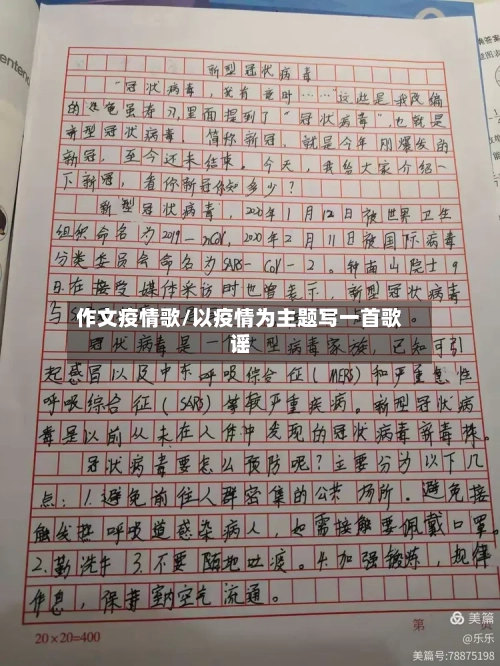 新型冠状病毒
"冠状病毒，没有意时……"这些是我改编
的里面提到了"冠状病毒"，也就是
新型冠状病毒，简称新冠，就是今年刚爆发的
新冠，至今还未结束。今天，我给大家介绍一
下新冠，看你新冠你知多少？
新型冠状病毒，2020年1月12日被世界卫生
组织命名为2019-nCoV，2020年2月11日被国际病毒
分类委员会命名为SARS-CoV-2。钟南山院士9
日在接受媒体采访时也曾表示，新型冠状病毒
与
作文疫情歌/以疫情为主题写一首歌
谣
冠状病毒是一个大型病毒家族，已知可引
起感冒以及中东呼吸综合征（MERS）和严重急性
呼吸综合征（SARS）等较严重疾病。新型冠状病
毒是以前从未在人体中发现的冠状病毒新毒株。
冠状病毒要怎么预防呢？主要分为以下几
点：1.避免前往人群密集的公共场所。避免接
触发热呼吸道感染病人，如需接触要佩戴口罩。
2.勤洗手 3.不要随地吐痰。4.加强锻炼，规律
作息，保持室内空气流通。
20×20=400
第
页
美篇
@乐乐
美篇号:78875198